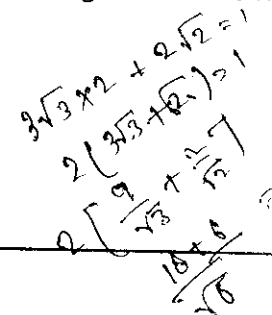 3√3×2 + 2√2 = 1
2(3√3+√2) = 1
2[9/√3 + 2/√2]
18+6/√6